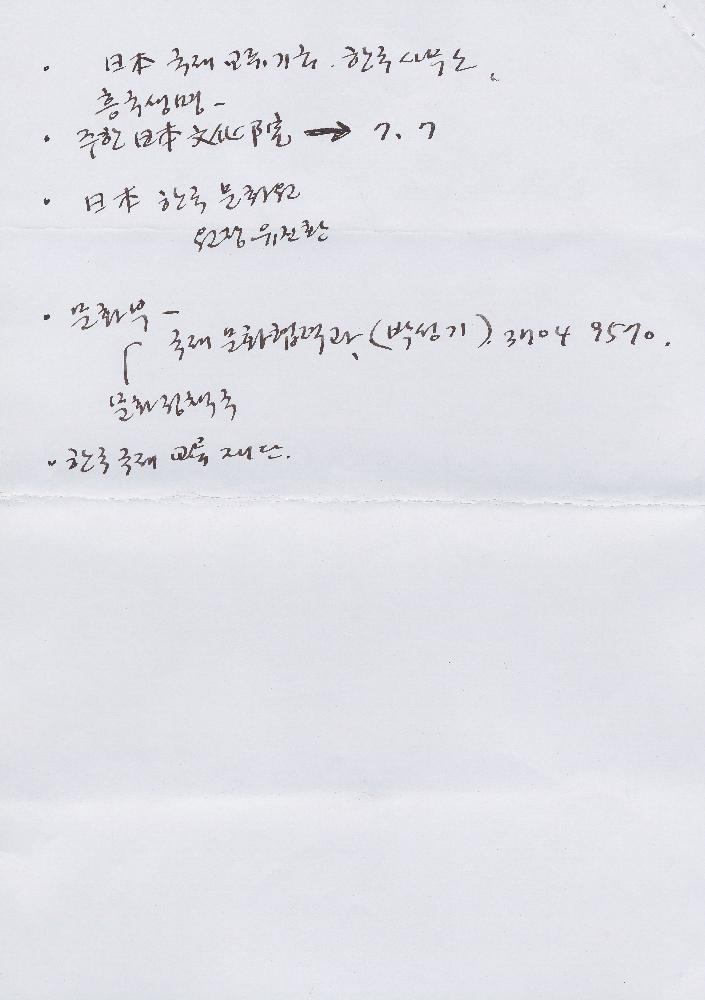 · 日本 국제 교류기금. 한국사무소.
흥국생명 -
· 주한 日本 文化院 → 7. 7
· 日本 한국 문화원
원장 유진환
· 문화부 -
국제 문화협력과, (박성기). 3704 9570.
문화정책국
· 한국국제 교류 재단.